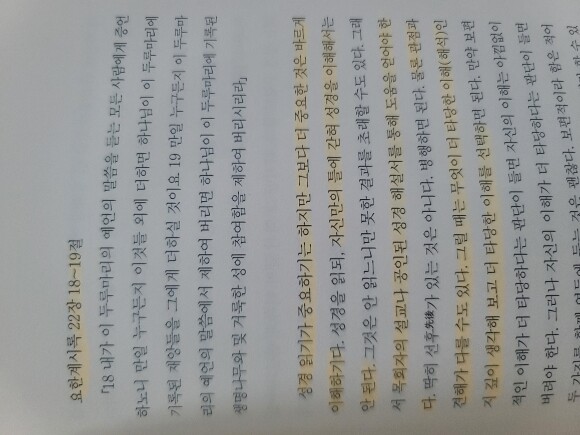 요한계시록 22장 18~19절
「18 내가 이 두루마리의 예언의 말씀을 듣는 모든 사람에게 증언
하노니 만일 누구든지 이것들 외에 더하면 하나님이 이 두루마리에
기록된 재앙들을 그에게 더하실 것이요. 19 만일 누구든지 이 두루마
리의 예언의 말씀에서 제하여 버리면 하나님이 이 두루마리에 기록된
생명나무와 및 거룩한 성에 참여함을 제하여 버리시리라」
성경 읽기가 중요하기는 하지만 그보다 더 중요한 것은 바르게
이해하기다. 성경을 읽되, 자신만의 틀에 갇혀 성경을 이해해서는
안 된다. 그것은 안 읽느니만 못한 결과를 초래할 수도 있다. 그래
서 목회자의 설교나 공인된 성경 해설서를 통해 도움을 얻어야 한
다. 딱히 선후先後가 있는 것은 아니다. 병행하면 된다. 물론 관점과
견해가 다를 수도 있다. 그럴 때는 무엇이 더 타당한 이해(해석)인
지 깊이 생각해 보고 더 타당한 이해를 선택하면 된다. 만약 보편
적인 이해가 더 타당하다는 판단이 들면 자신의 이해는 아낌없이
버려야 한다. 그러나 자신의 이해가 더 타당하다는 판단이 들면
두 가지를 함께